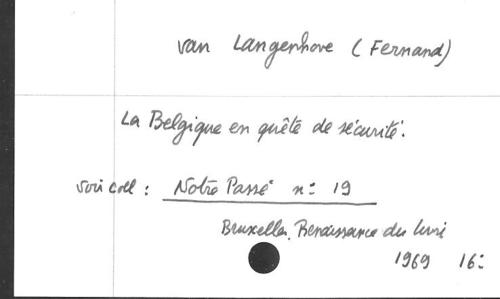 van Langenhove (Fernand)
La Belgique en quête de sécurité.
Voir coll : Notre Passé n: 19
Bruxelles, Renaissance du livre
1969 16: